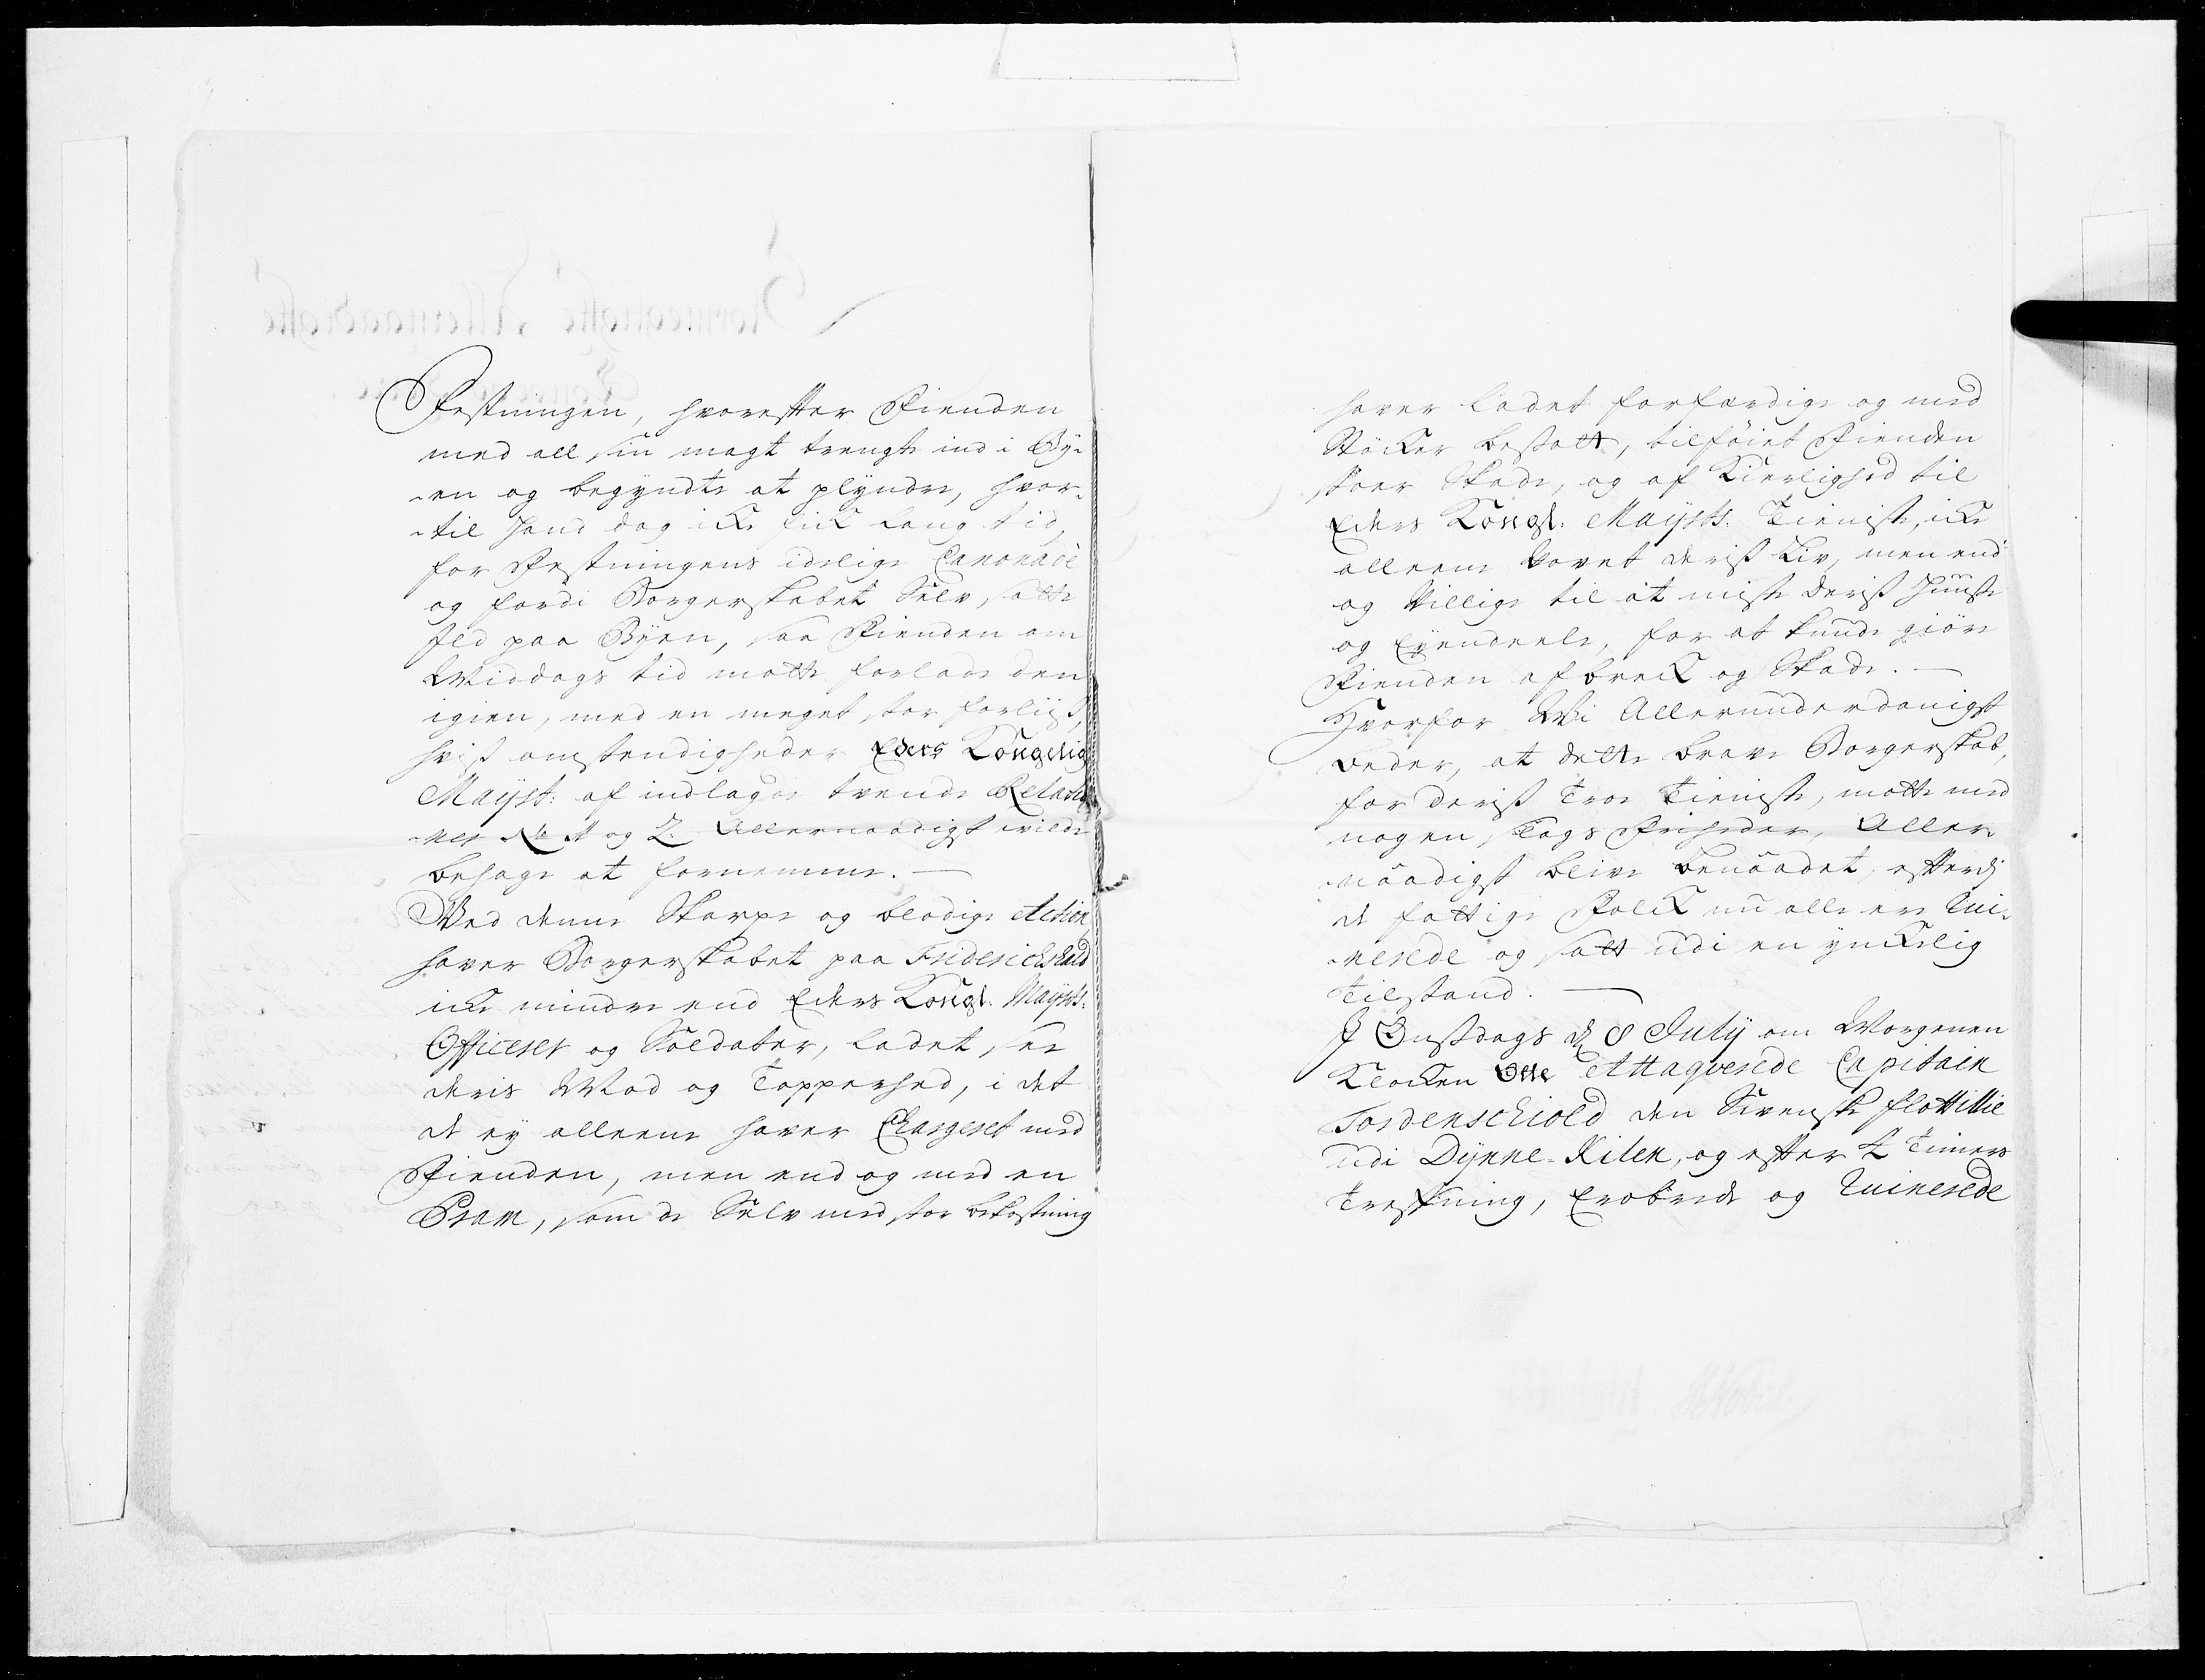 Festningen, hvorefter Fienden
med all sin magt trengte ind i By-
-en og begyndte at plyndre, hvor-
-til hand dog icke fick lang tid,
for Festningens idelige Canonade
og fordi Borgerskabet Selv satte
Ild paa Byen, saa Fienden om
Middags tid motte forlade den
igien, med en meget stor forliis,
hviß omstendigheder Eders Kongelig
Mayst: af indlagde tvende Relatio-
-ner No A og Z. Allernaadigst vilde
behage at fornemme. —
Ved denne Skarpe og blodige Action,
haver Borgerskabet paa Friderichshald
icke mindre end Eders Kongl. Maysts:
Officerer og Soldater, ladet see
deris Mod og Tapperhed, i det
de ey alleene haver Chargeret med
Fienden, men end og med en
Pram, som de Selv med stor bekostning
haver ladet forfærdige og med
Stöcker besatt, tilföiet Fienden
stoer Skade, og af Kierlighed til
Eders Kongl: Maysts: Tieniste, icke
alleene vovet deriß Liv, men end
og Villige til at miste deriß Huuse
og Eyendeele, for at kunde giöre
Fienden afbreck og Skade. —
Hvorfor Wi Allerunderdanigst
beder, at dette brave Borgerskab,
for deriß Troe Tieniste, motte med
nogen Aars Friheder, Aller-
-naadigst blive benaadet, efterdj
de fattige Folck nu alle ere Rui-
-nerede og satt udi en ynckelig
Tilstand. —
I Onsdags d 8 July om Morgenen
Klocken Otte Attaqverede Capitain
Tordenschiold den Svenske flottillie
udi Dynne-Kilen, og efter 4 Timers
Trefning, Erobrede og Ruinerede